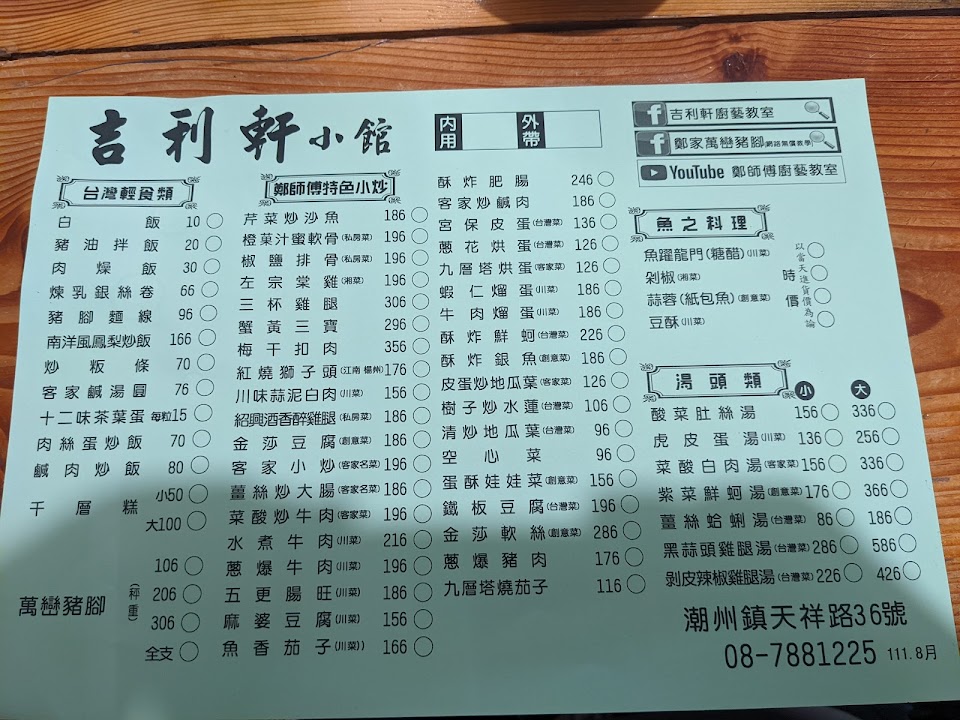 吉利軒小館
內用 外帶
吉利軒廚藝教室
鄭家萬巒豬腳(網路無償教學)
YouTube 鄭師傅廚藝教室
台灣輕食類
白飯 10
豬油拌飯 20
肉燥飯 30
煉乳銀絲卷 66
豬腳麵線 96
南洋風鳳梨炒飯 166
炒粄條 70
客家鹹湯圓 76
十二味茶葉蛋 每粒15
肉絲蛋炒飯 70
鹹肉炒飯 80
千層糕 小50
大100
萬巒豬腳 (秤重)
106
206
306
全支
鄭師傅特色小炒
芹菜炒沙魚 186
橙菓汁蜜軟骨(私房菜) 196
椒鹽排骨(私房菜) 196
左宗棠雞(湘菜) 196
三杯雞腿 306
蟹黃三寶 296
梅干扣肉 356
紅燒獅子頭(江南 楊州) 176
川味蒜泥白肉(川菜) 156
紹興酒香醉雞腿(私房菜) 186
金莎豆腐(創意菜) 186
客家小炒(客家名菜) 196
薑絲炒大腸(客家名菜) 186
菜酸炒牛肉(客家菜) 196
水煮牛肉(川菜) 216
蔥爆牛肉(川菜) 196
五更腸旺(川菜) 186
麻婆豆腐(川菜) 156
魚香茄子(川菜)) 166
酥炸肥腸 246
客家炒鹹肉 186
宮保皮蛋(台灣菜) 136
蔥花烘蛋(台灣菜) 126
九層塔烘蛋(客家菜) 126
蝦仁熘蛋(川菜) 186
牛肉熘蛋(川菜) 186
酥炸鮮蚵(台灣菜) 226
酥炸銀魚(創意菜) 186
皮蛋炒地瓜葉(客家菜) 126
樹子炒水蓮(台灣菜) 106
清炒地瓜葉(台灣菜) 96
空心菜 96
蛋酥娃娃菜(創意菜) 156
鐵板豆腐(台灣菜) 196
金莎軟絲(創意菜) 286
蔥爆豬肉 176
九層塔燒茄子 116
魚之料理
魚躍龍門(糖醋)(川菜)
剁椒(湘菜)
蒜蓉(紙包魚)(創意菜)
豆酥(川菜)
時價
以當天進貨價為論
湯頭類 小 大
酸菜肚絲湯 156 336
虎皮蛋湯(川菜) 136 256
菜酸白肉湯(客家菜) 156 336
紫菜鮮蚵湯(創意菜) 176 366
薑絲蛤蜊湯(台灣菜) 86 186
黑蒜頭雞腿湯(台灣菜) 286 586
剝皮辣椒雞腿湯(台灣菜) 226 426
潮州鎮天祥路36號
08-7881225 111.8月